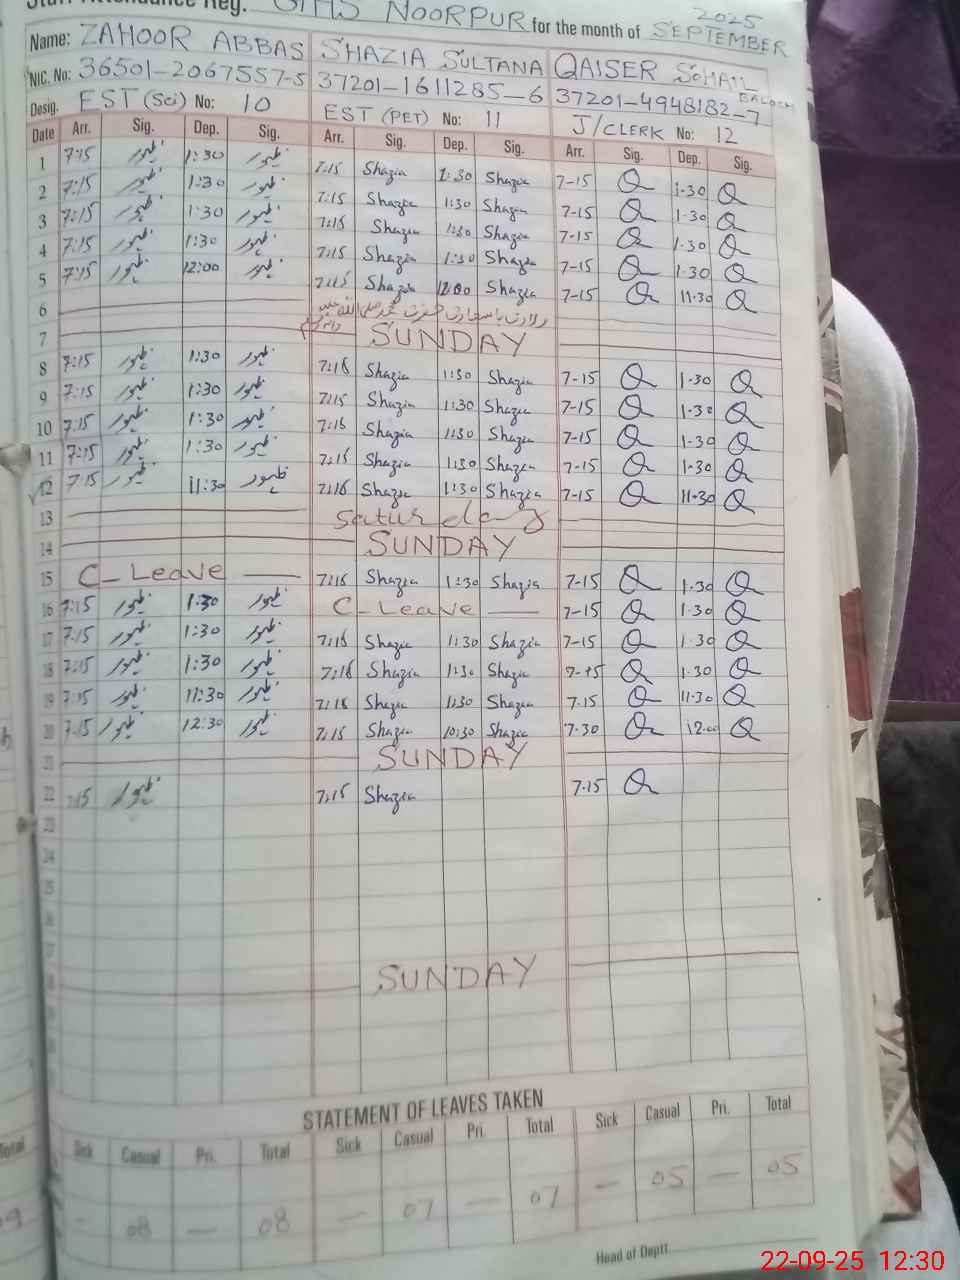 Staff Attendance Reg. GHS NOORPUR for the month of SEPTEMBER 2025
Name: ZAHOOR ABBAS SHAZIA SULTANA QAISER SOHAIL BALOCH
NIC. No: 36501-2067557-5 37201-1611285-6 37201-4948182-7
Desig. EST (Sci) No: 10 EST (PET) No: 11 J/CLERK No: 12
Date Arr. Sig. Dep. Sig. Arr. Sig. Dep. Sig. Arr. Sig. Dep. Sig.
1 7:15 ظہور 1:30 ظہور 7:15 Shazia 1:30 Shazia 7-15 1-30
2 7:15 ظہور 1:30 ظہور 7:15 Shazia 1:30 Shazia 7-15 1-30
3 7:15 ظہور 1:30 ظہور 7:16 Shazia 1:30 Shazia 7-15 1-30
4 7:15 ظہور 1:30 ظہور 7:15 Shazia 1:30 Shazia 7-15 1-30
5 7:15 ظہور 12:00 ظہور 7:15 Shazia 12:00 Shazia 7-15 11-30
6 ولادت باسعادت حضرت محمد صلی اللہ علیہ وآلہ وسلم
7 SUNDAY
8 7:15 ظہور 1:30 ظہور 7:16 Shazia 1:30 Shazia 7-15 1-30
9 7:15 ظہور 1:30 ظہور 7:15 Shazia 1:30 Shazia 7-15 1-30
10 7:15 ظہور 1:30 ظہور 7:16 Shazia 1:30 Shazia 7-15 1-30
11 7:15 ظہور 1:30 ظہور 7:16 Shazia 1:30 Shazia 7-15 1-30
12 7:15 ظہور 11:30 ظہور 7:16 Shazia 1:30 Shazia 7-15 11-30
13 Saturday
14 SUNDAY
15 C-Leave 7:16 Shazia 1:30 Shazia 7-15 1-30
16 7:15 ظہور 1:30 ظہور C-Leave 7-15 1-30
17 7:15 ظہور 1:30 ظہور 7:16 Shazia 1:30 Shazia 7-15 1-30
18 7:15 ظہور 1:30 ظہور 7:16 Shazia 1:30 Shazia 7-15 1-30
19 7:15 ظہور 11:30 ظہور 7:16 Shazia 11:30 Shazia 7.15 11-30
20 7:15 ظہور 12:30 ظہور 7:15 Shazia 10:30 Shazia 7-30 12-00
21 SUNDAY
22 7:15 ظہور 7:15 Shazia 7-15
23
24
25
26
27
28 SUNDAY
STATEMENT OF LEAVES TAKEN
Sick Casual Pri. Total Sick Casual Pri. Total Sick Casual Pri. Total
- 08 - 08 - 07 - 07 - 05 - 05
Head of Deptt.
22-09-25 12:30